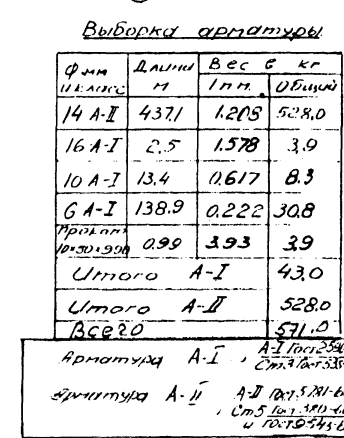 Выборка арматуры
Ф мм и класс Длины м Вес в кг
1 п.м. Общий
14 А-II 437,1 1.208 528,0
16 А-I 2,5 1.578 3,9
10 А-I 13.4 0.617 8.3
6 А-I 138.9 0.222 30.8
Прокат 10×50×990 0.99 3.93 3,9
Итого А-I 43.0
Итого А-II 528.0
Всего 571.0
Арматура А-I, А-I Гост 2590
Ст.3 Гост 535
Арматура А-II А-II Гост 5781-6
, Ст5 Гост 380-6
и гост 9543-6